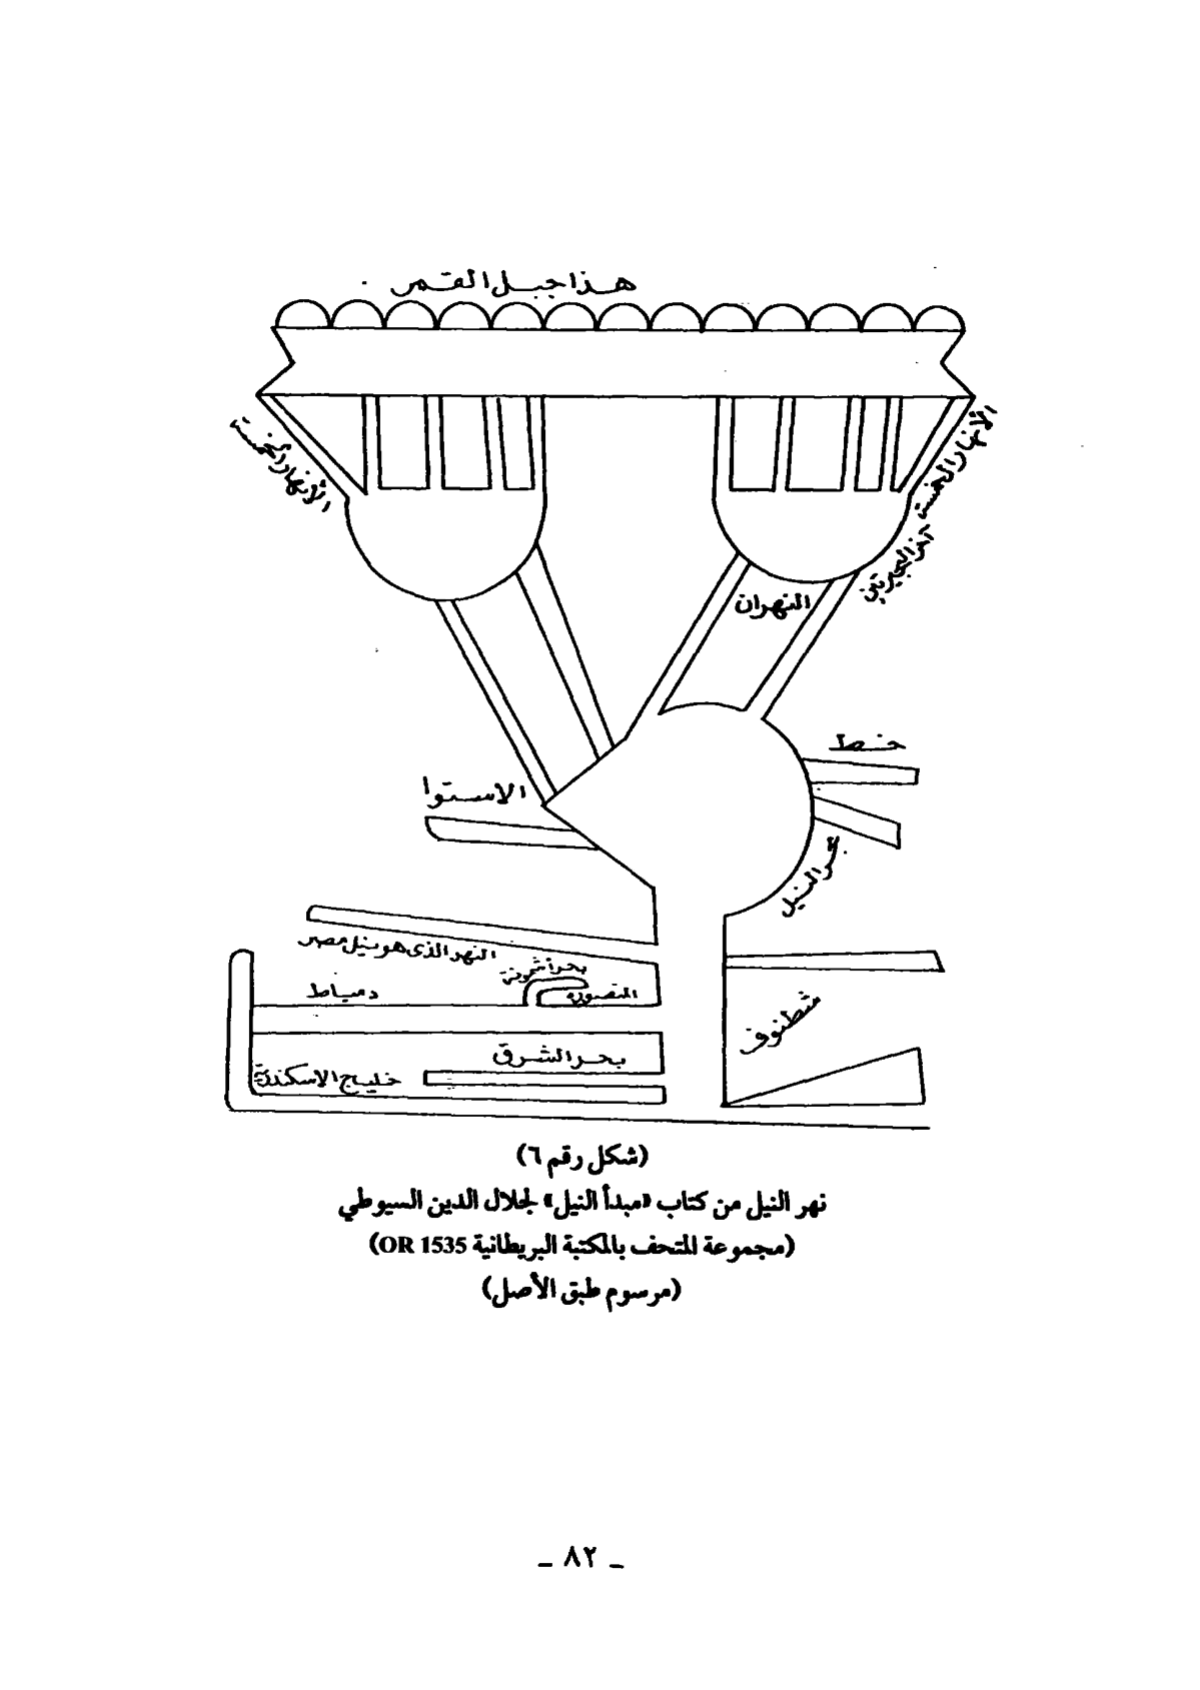 هذا جبل القمر
الأنهار الخمسة
الأنهار الخمسة
آخر البحيرتين
النهران
خط
الاستوا
بحر النيل
النهر الذى هو نيل مصر
بحر أشمونة
المنصورة
دمياط
شطنوف
بحر الشرق
خليج الاسكندرية
(شكل رقم ٦)
نهر النيل من كتاب «مبدأ النيل» لجلال الدين السيوطي
(مجموعة المتحف بالمكتبة البريطانية OR 1535)
(مرسوم طبق الأصل)
ـ ٨٢ ـ